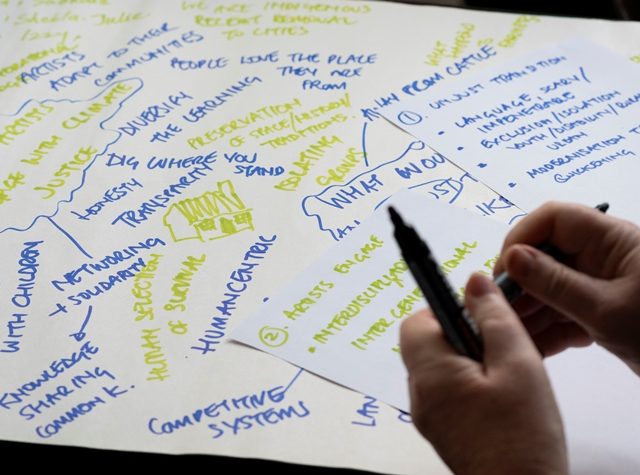 WE ARE INDIGENOUS
RECENT REMOVAL
TO CITIES
Sheela. Julie
Izzy.
ARTISTS
ADAPT TO THEIR
COMMUNITIES
PEOPLE LOVE THE PLACE
THEY ARE
FROM
ARTISTS
WITH CLIMATE
JUSTICE
DIVERSIFY
THE LEARNING
PRESERVATION
OF
TRADITIONS.
DIG WHERE YOU
STAND
HONESTY
TRANSPARTY
ISOLATING
WHAT WOU
AWAY FROM CATTLE
1 UNJUST TRANSITION
• LANGUAGE SCARY/
IMPENETRABLE
• EXCLUSION/ISOLATION
YOUTH/DISABILITY/
• MODERNISATION
WITH CHILDREN
NETWORKING
+ SOLIDARITY
HUMAN SELECTION
OF SURVIVAL
HUMANCENTRIC
KNOWLEDGE
SHARING
COMMON K.
COMPETITIVE
SYSTEMS
LAN
2 ARTISTS ENGAGE
• INTERDISCIPLI
INTERGEN